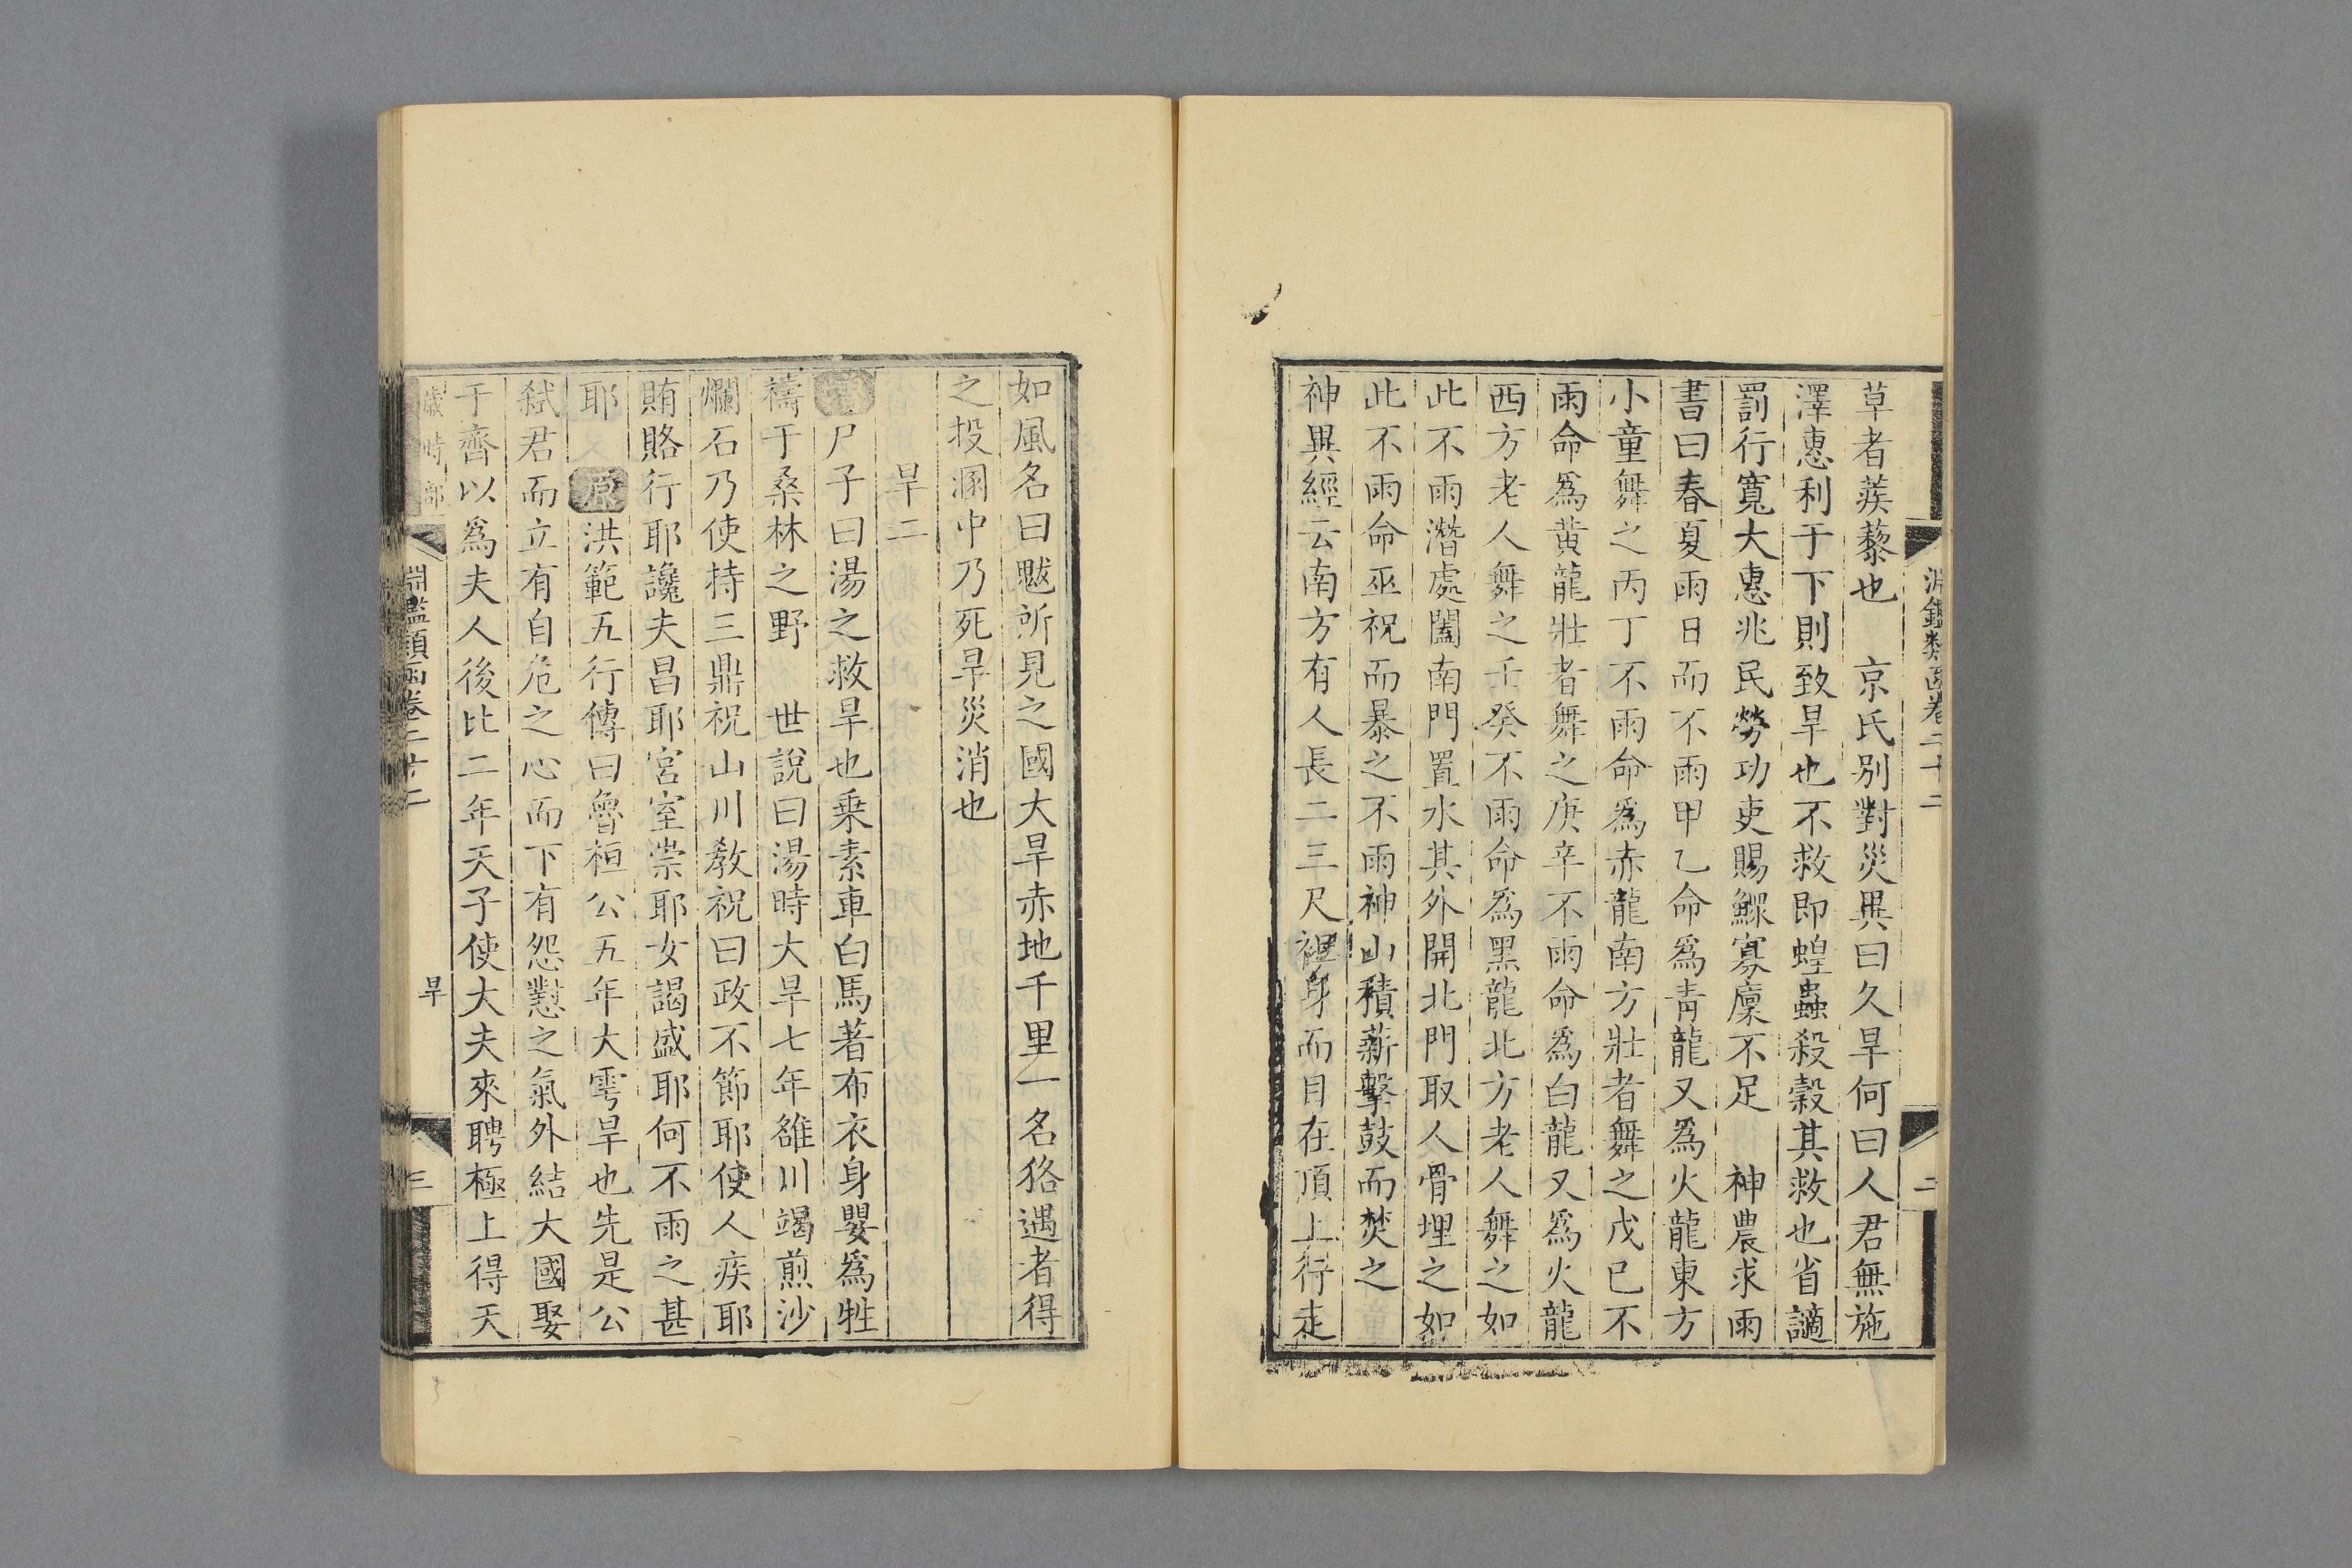 淵鑑類函卷二十二
二
草者蒺藜也　京氏別對災異曰久旱何曰人君無施
澤惠利于下則致旱也不救即蝗蟲殺榖其救也省謫
罰行寬大惠兆民勞功吏賜鰥寡廩不足　神農求雨
書曰春夏雨日而不雨甲乙命爲青龍又爲火龍東方
小童舞之丙丁不雨命爲赤龍南方壯者舞之戊己不
雨命爲黃龍壯者舞之庚辛不雨命爲白龍又爲火龍
西方老人舞之壬癸不雨命爲黑龍北方老人舞之如
此不雨潛處闔南門置水其外開北門取人骨埋之如
此不雨命巫祝而暴之不雨神山積薪擊鼓而焚之
神異經云南方有人長二三尺裸身而目在頂上行走
如風名曰魃所見之國大旱赤地千里一名狢遇者得
之投溷中乃死旱災消也
旱二
尸子曰湯之救旱也乗素車白馬著布衣身嬰爲牲
禱于桑林之野　世說曰湯時大旱七年雒川竭煎沙
爛石乃使持三鼎祝山川教祝曰政不節耶使人疾耶
賄賂行耶讒夫昌耶宮室崇耶女謁盛耶何不雨之甚
耶　原洪範五行傳曰魯桓公五年大雩旱也先是公
弑君而立有自危之心而下有怨懟之氣外結大國娶
于齊以爲夫人後比二年天子使大夫來聘極上得天
歲時部
淵鑑類函卷二十二
旱
三